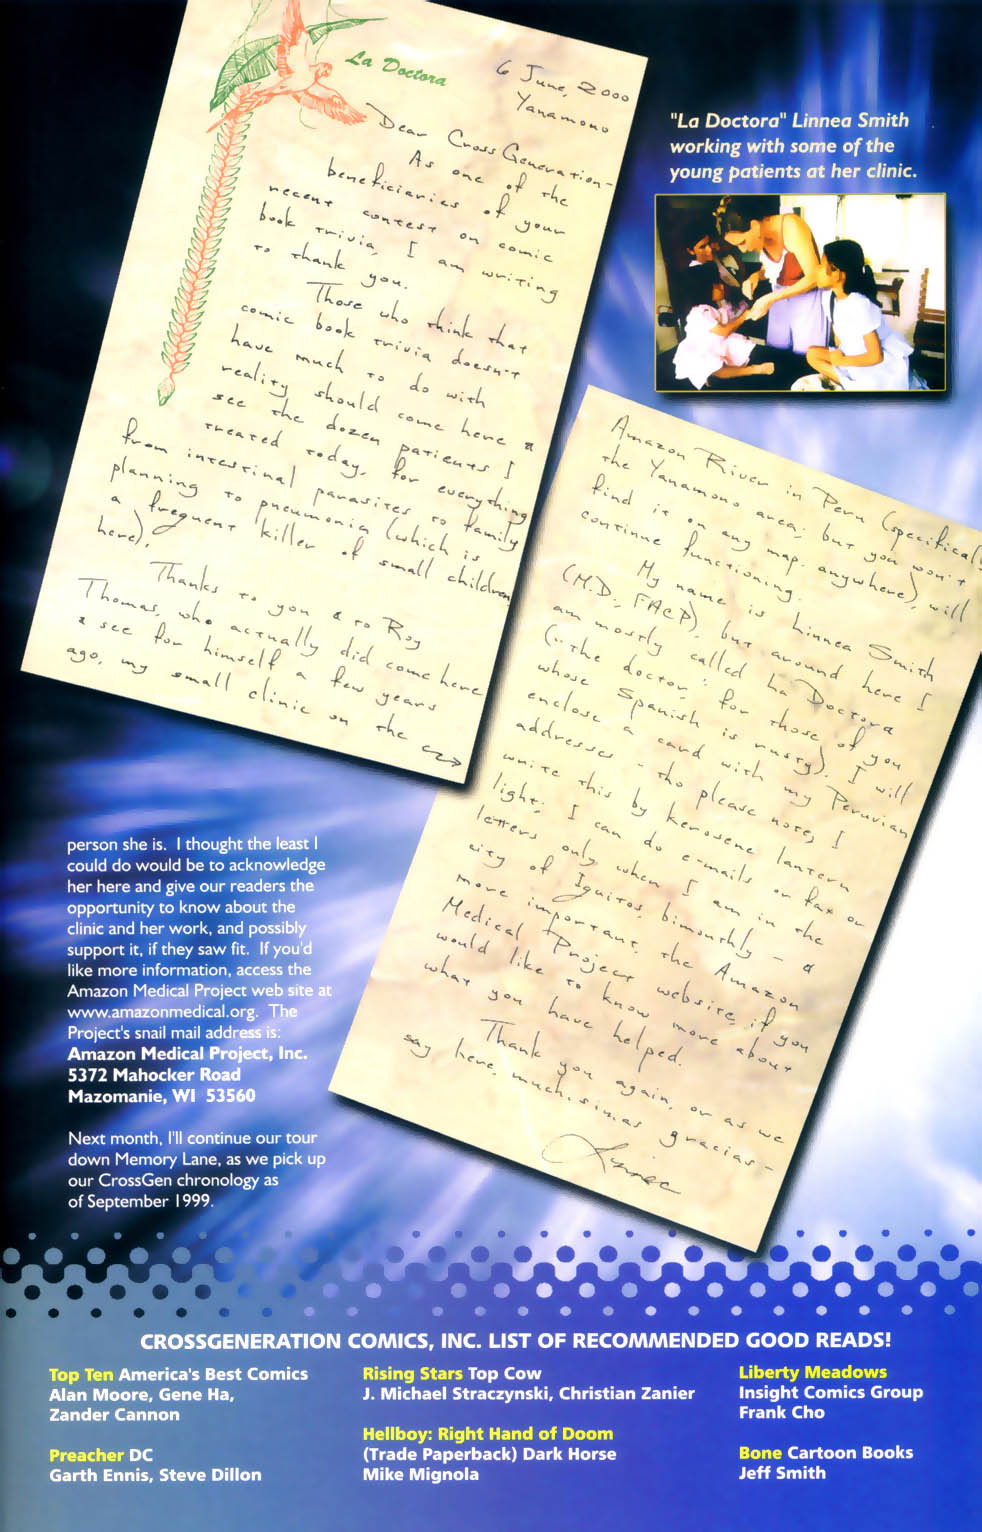 La Doctora
6 June, 2000
Yanamono
Dear CrossGeneration-
As one of the
beneficiaries of your
recent contest on comic
book trivia, I am writing
to thank you.
Those who think that
comic book trivia doesn't
have much to do with
reality should come here &
see the dozen patients I
treated today, for everything
from intestinal parasites to family
planning to pneumonia (which is
a frequent killer of small children
here).
Thanks to you & to Roy
Thomas, who actually did come here
& see for himself a few years
ago, my small clinic on the
"La Doctora" Linnea Smith
working with some of the
young patients at her clinic.
Amazon River in Peru (specifically
the Yanamono area, but you won't
find it on any map, anywhere), will
continue functioning.
My name is Linnea Smith
(M.D., FACP), but around here I
am mostly called La Doctora
("the doctor," for those of you
whose Spanish is rusty). I will
enclose a card with my Peruvian
addresses - tho please note, I
write this by kerosene lantern
light; I can do e-mails or fax or
letters only when I am in the
city of Iquitos, bimonthly - &
more important, the Amazon
Medical Project website, if you
would like to know more about
what you have helped.
Thank you again, or as we
say here, muchísimas gracias -
Linnea
person she is. I thought the least I
could do would be to acknowledge
her here and give our readers the
opportunity to know about the
clinic and her work, and possibly
support it, if they saw fit. If you'd
like more information, access the
Amazon Medical Project web site at
www.amazonmedical.org. The
Project's snail mail address is:
Amazon Medical Project, Inc.
5372 Mahocker Road
Mazomanie, WI 53560
Next month, I'll continue our tour
down Memory Lane, as we pick up
our CrossGen chronology as
of September 1999.
CROSSGENERATION COMICS, INC. LIST OF RECOMMENDED GOOD READS!
Top Ten America's Best Comics
Alan Moore, Gene Ha,
Zander Cannon
Preacher DC
Garth Ennis, Steve Dillon
Rising Stars Top Cow
J. Michael Straczynski, Christian Zanier
Hellboy: Right Hand of Doom
(Trade Paperback) Dark Horse
Mike Mignola
Liberty Meadows
Insight Comics Group
Frank Cho
Bone Cartoon Books
Jeff Smith